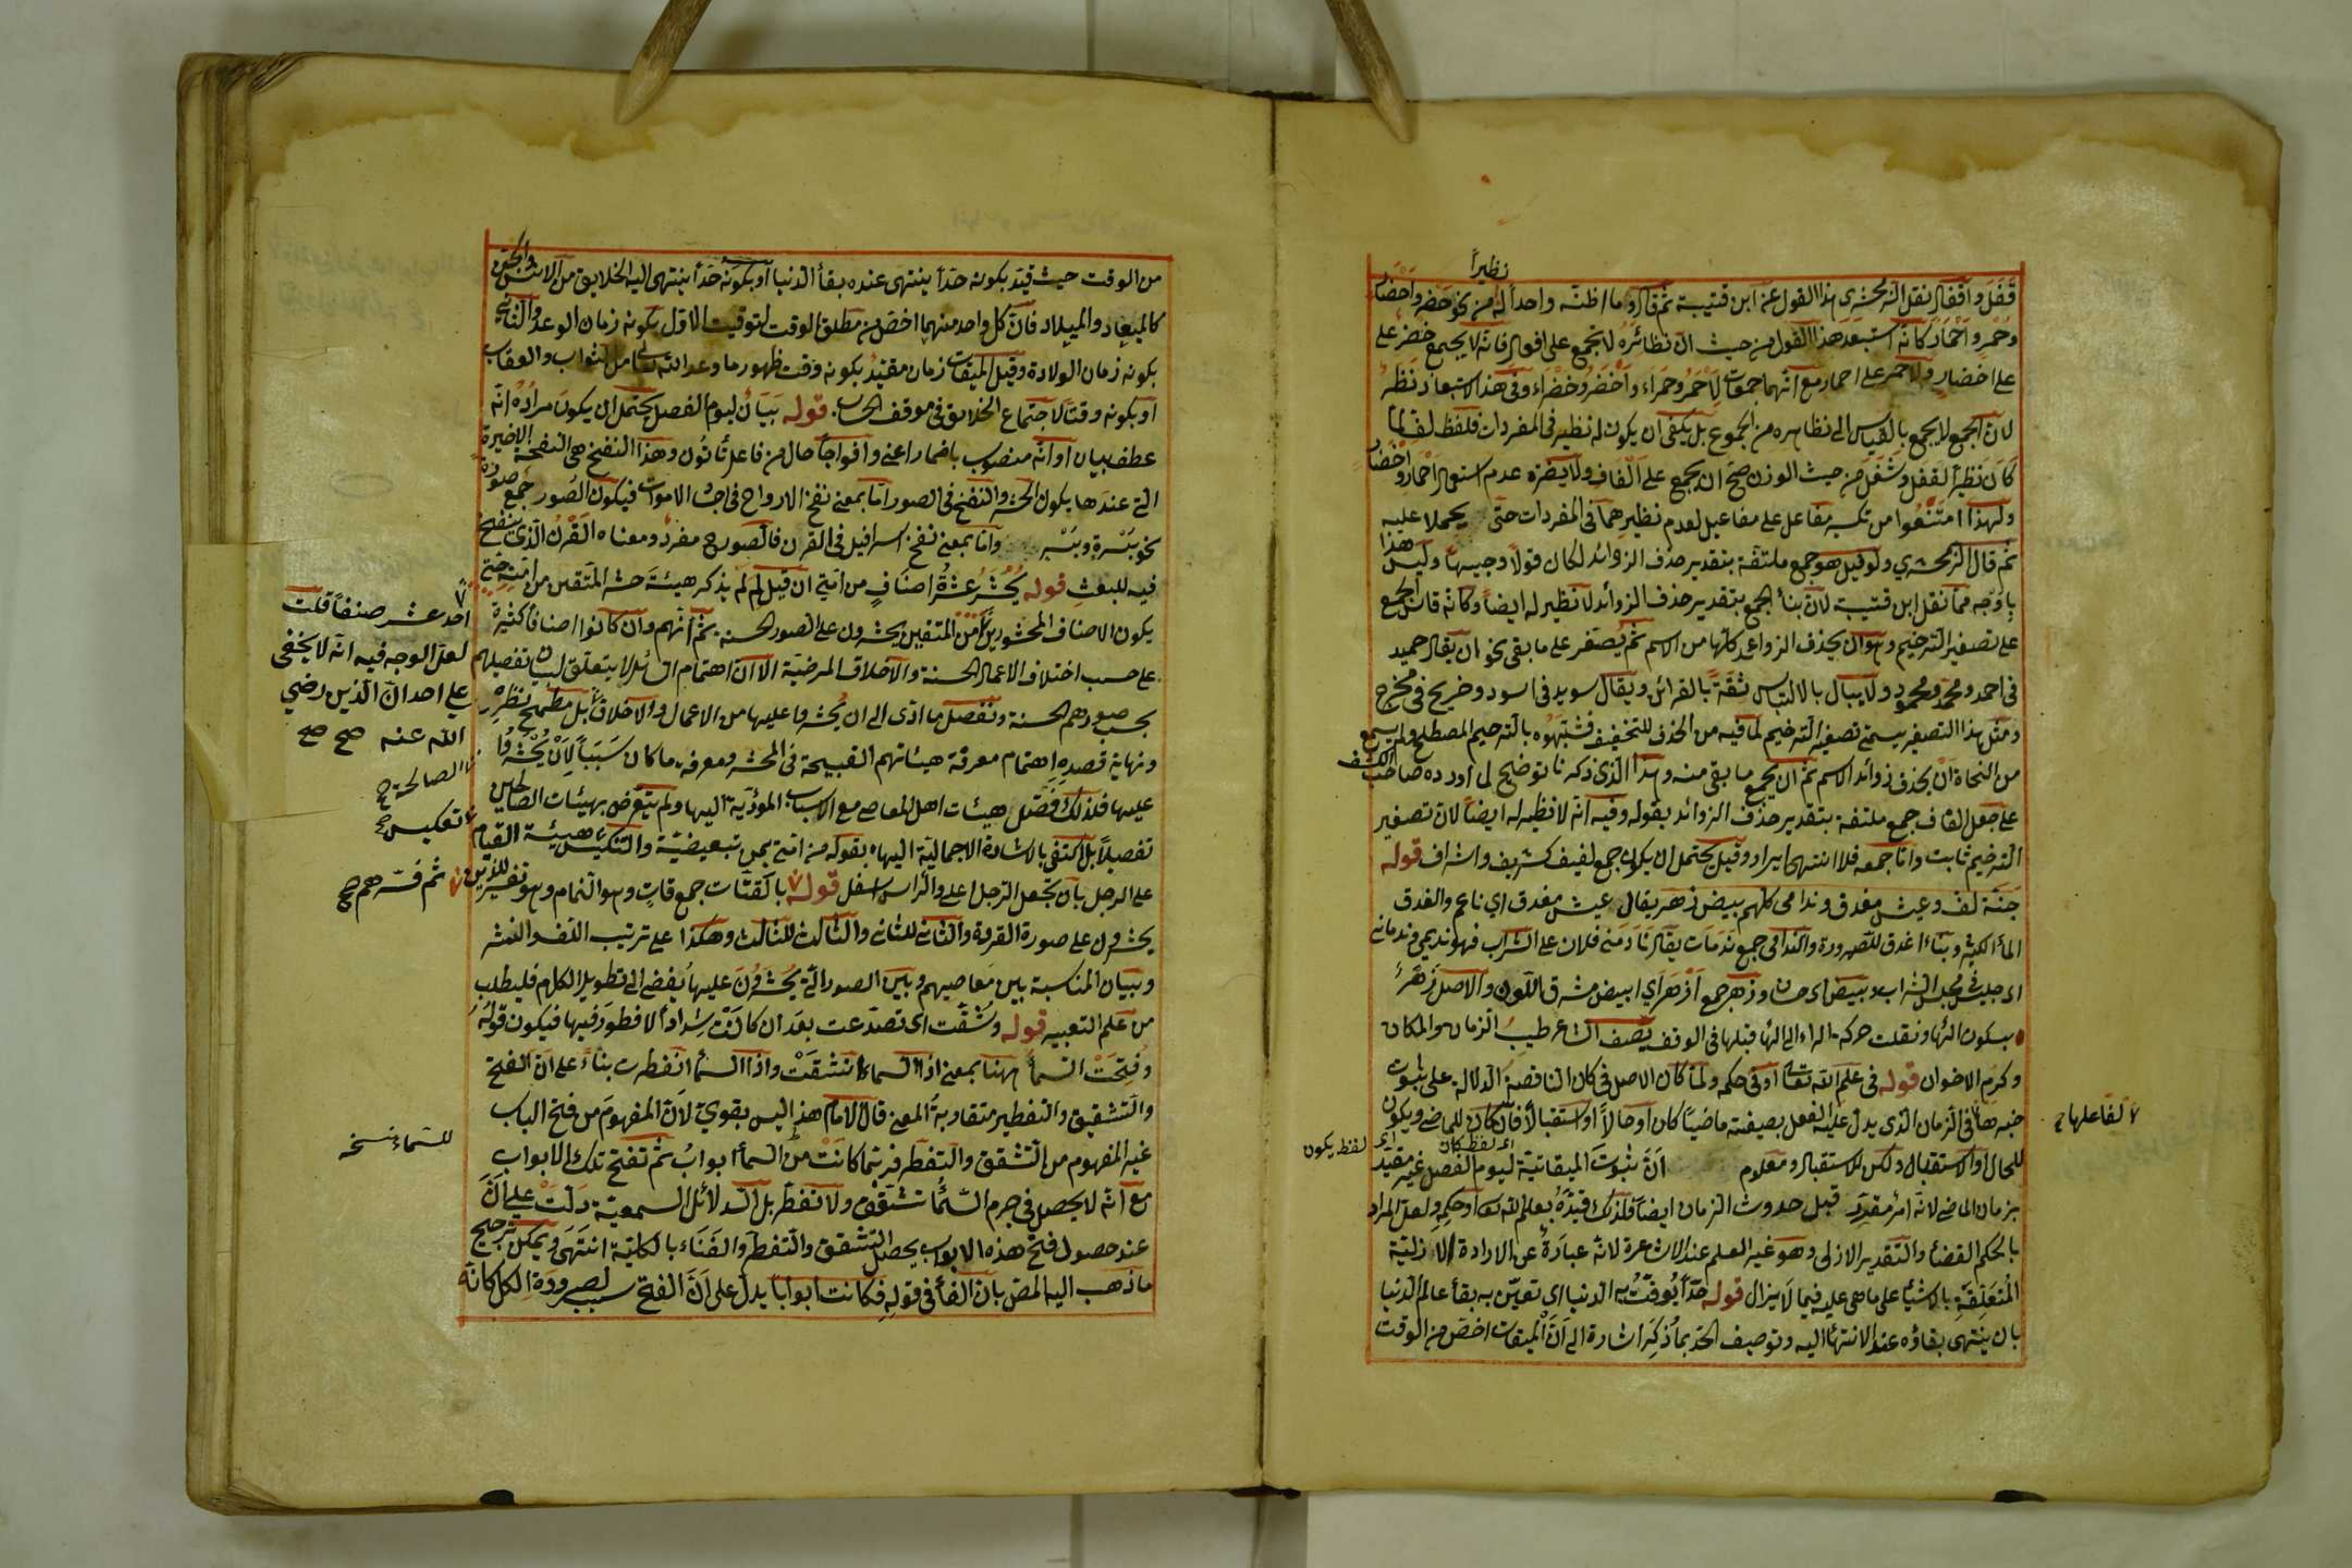 نظيراً
قفل واقفال نقل الزمخشرى هذا القول عن ابن قتيبة ثم قال وما اظنّه واحداً له من نحو خضر واخضار
وحُمر واحمار كانّه استبعد هذا القول من حيث انّ نظائره لا تجمع على افعال فانّه لا يجمع خضر على
على اخضار ولا حمر على احمار مع انّهما جموعات لأحمر وحمراء واخضر وخضراء وفى هذا الاستبعاد نظر
لانّ الجمع لا يجمع بالقياس الى نظايره من الجموع بل يكفى ان يكون له نظير فى المفردات فلفظ لف لما
كان نظيراً لقفل وشغل من حيث الوزن صحّ ان يجمع على الفاف ولا يضرّه عدم استعمال احمار واخضار
ولهذا امتنعوا من تكسير مفاعل على مفاعيل لعدم نظيرهما فى المفردات حتّى يحملا عليه
ثم قال الزمخشري ولو قيل هو جمع ملتفّة بتقدير حذف الزوائد لكان قولاً وجيهاً وليس هذا
باوجه ممّا نقل ابن قتيبة لانّ بناء الجمع بتقدير حذف الزوائد لا نظير له ايضاً وكانّه قاس الجمع
على تصغير الترخيم وهو ان يحذف الزوائد كلّها من الاسم ثم يصغّر على ما بقى نحو ان يقال حميد
فى احمد ومحمّد ومحمود ولا يبال بالالتباس ثقةً بالقرائن ويقال سويد فى اسود وخريج فى مخرج
ومثل هذا التصغير يسمّى تصغير الترخيم لما فيه من الحذف للتخفيف فشبّهوه بالترخيم المصطلح ولم يسمع
من النحاة ان يحذف زوائد الاسم ثم ان يجمع ما بقى منه وهذا الذى ذكرنا توضيح لما اورده صاحب الكشف
على جعل الفاف جمع ملتفة بتقدير حذف الزوائد بقوله وفيه انّه لا نظير له ايضاً لانّ تصغير
الترخيم ثابت وامّا جمعه فلا انتهى ايراده وقيل يحتمل ان يكون جمع لفيف كشريف واشراف قوله
جنّة لفّ وعيش مغدق وندامى كلّهم بيض زهر يقال عيش مغدق اي ناعم والغدق
الماء الكثير وبناء اغدق للصيرورة والندامى جمع ندمان يقال نادمنى فلان على الشراب فهو نديمى وندمانى
اى جليسى فى مجلس الشراب وبيض اى حسان وزهر جمع ازهر اي ابيض مشرق اللون والاصل زهر
بسكون الهاء ونقلت حركة الراء الى الهاء قبلها فى الوقف يصف الشاعر طيب الزمان والمكان
وكرم الاخوان قوله فى علم الله تعالى او فى حكمه ولمّا كان الاصل فى كان الناقصة الدلالة على ثبوت
خبرها فى الزمان الذى يدل عليه الفعل بصيغته ماضياً كان او حالاً او استقبالاً فان كان للماضى ويكون
لفاعلها
اى لفظ كان
اى لفظ يكون
للحال او الاستقبال وكن للاستقبال ومعلوم انّ ثبوت الميقاتيّة ليوم الفصل غير مقيّد
بزمان الماضى لانّه امر مقدّر قبل حدوث الزمان ايضاً فلذلك قيّده بعلم الله تعالى او حكمه ولعل المراد
بالحكم القضاء والتقدير الازلى وهو غير العلم عند الاشاعرة لانّه عبارة عن الارادة الازليّة
المتعلقة بالاشياء على ما هى عليه فيما لا يزال قوله حدّاً يوقّت به الدنيا اى تعيّن به بقاء عالم الدنيا
بان ينتهى بقاؤه عند الانتهاء اليه وتوصيف الحدّ بما ذكر اشارة الى انّ الميقات اخصّ من الوقت
من الوقت حيث قيّد بكونه حدّاً ينتهى عنده بقاء الدنيا او بكونه حدّاً ينتهى اليه الخلايق من الانس والجن
كالميعاد والميلاد فانّ كل واحد منهما اخصّ من مطلق الوقت لتوقيت الاوّل بكونه زمان الوعد والثانى
بكونه زمان الولادة وقيل الميقات زمان مقيّد بكونه وقت ظهور ما وعد الله تعالى من الثواب والعقاب
او بكونه وقتاً لاجتماع الخلايق فى موقف الحساب قوله بيان ليوم الفصل يحتمل ان يكون مراده انّه
عطف بيان او انّه منصوب باضمار اعنى وافواجاً حال من فاعل تأتون وهذا النفخ هى النفخة الاخيرة
التى عندها يكون الحشر والنفخ فى الصور امّا بمعنى نفخ الارواح فى اجساد الاموات فيكون الصور جمع صورة
نحو بسرة وبسر وامّا بمعنى نفخ اسرافيل فى القرن فالصور ح مفرد ومعناه القرن الذى ينفخ
فيه للبعث قوله يحشر عشرة اصناف من امّتى ان قيل لم لم يذكر هيئة حشر المتّقين من امّته حتى
يكون الاصناف المحشورين من المتقين يحشرون على الصور الحسنة ثم انّهم وان كانوا اصنافاً كثيرة
احد عشر صنفاً قلت
لعلّ الوجه فيه انّه لا يخفى
على احد انّ الذين رضي
الله عنه صح صح
على حسب اختلاف الاعمال الحسنة والاخلاق المرضيّة الا انّ اهتمام السائل لا يتعلّق لبيان تفصيلهم
بحسب صورهم الحسنة وتفصيل ما ادّى الى ان يحشروا عليها من الاعمال والاخلاق بل مطمح نظره
ونهاية قصده اهتمام معرفة هيئاتهم القبيحة فى المحشر ومعرفة ما كان سبباً لأن يحشروا
الصالحة ح
عليها فلذلك فصّل هيئات اهل المعاصى مع الاسباب المؤدّية اليها ولم يتعرّض بهيئات الصالحين
تفصيلاً بل اكتفى بالاشارة الاجماليّة اليها بقوله من امّتى بمن تبعيضيّة والتنكيس هيئة القيام
تعكيس صح
على الرجل بان يجعل الرجل اعلى والرأس اسفل قوله بالقتّات جمع قات وهو النمام وهو تفسير للذين
ثم فسّرهم صح
يحشرون على صورة القردة والثانى للثانى والثالث للثالث وهكذا على ترتيب اللف والنشر
وبيان المناسبة بين معاصيهم وبين الصور التى يحشرون عليها يفضى الى تطويل الكلام فليطلب
من علم التعبير قوله وشقّت اى تصدّعت بعد ان كانت شداداً لا فطور فيها فيكون قوله
وفتحت السماء ههنا بمعنى اذا السماء انشقّت واذا السماء انفطرت بناءً على انّ الفتح
والتشقيق والتفطير متقاربة المعنى قال الامام هذا ليس بقوي لانّ المفهوم من فتح الباب
غير المفهوم من التشقق والتفطّر فربّما كانت من السماء ابواب ثم تفتح تلك الابواب
للسماء نسخه
مع انّه لا يحصل فى جرم السماء تشقّق ولا تفطّر بل الدلائل السمعيّة دلّت على انّ
عند حصول فتح هذه الابواب يحصل التشقق والتفطر والفناء بالكليّة انتهى ويمكن ترجيح
ما ذهب اليه المص بانّ الفاء فى قوله فكانت ابواباً يدل على انّ الفتح سبب لصيرورة الكل كانّه